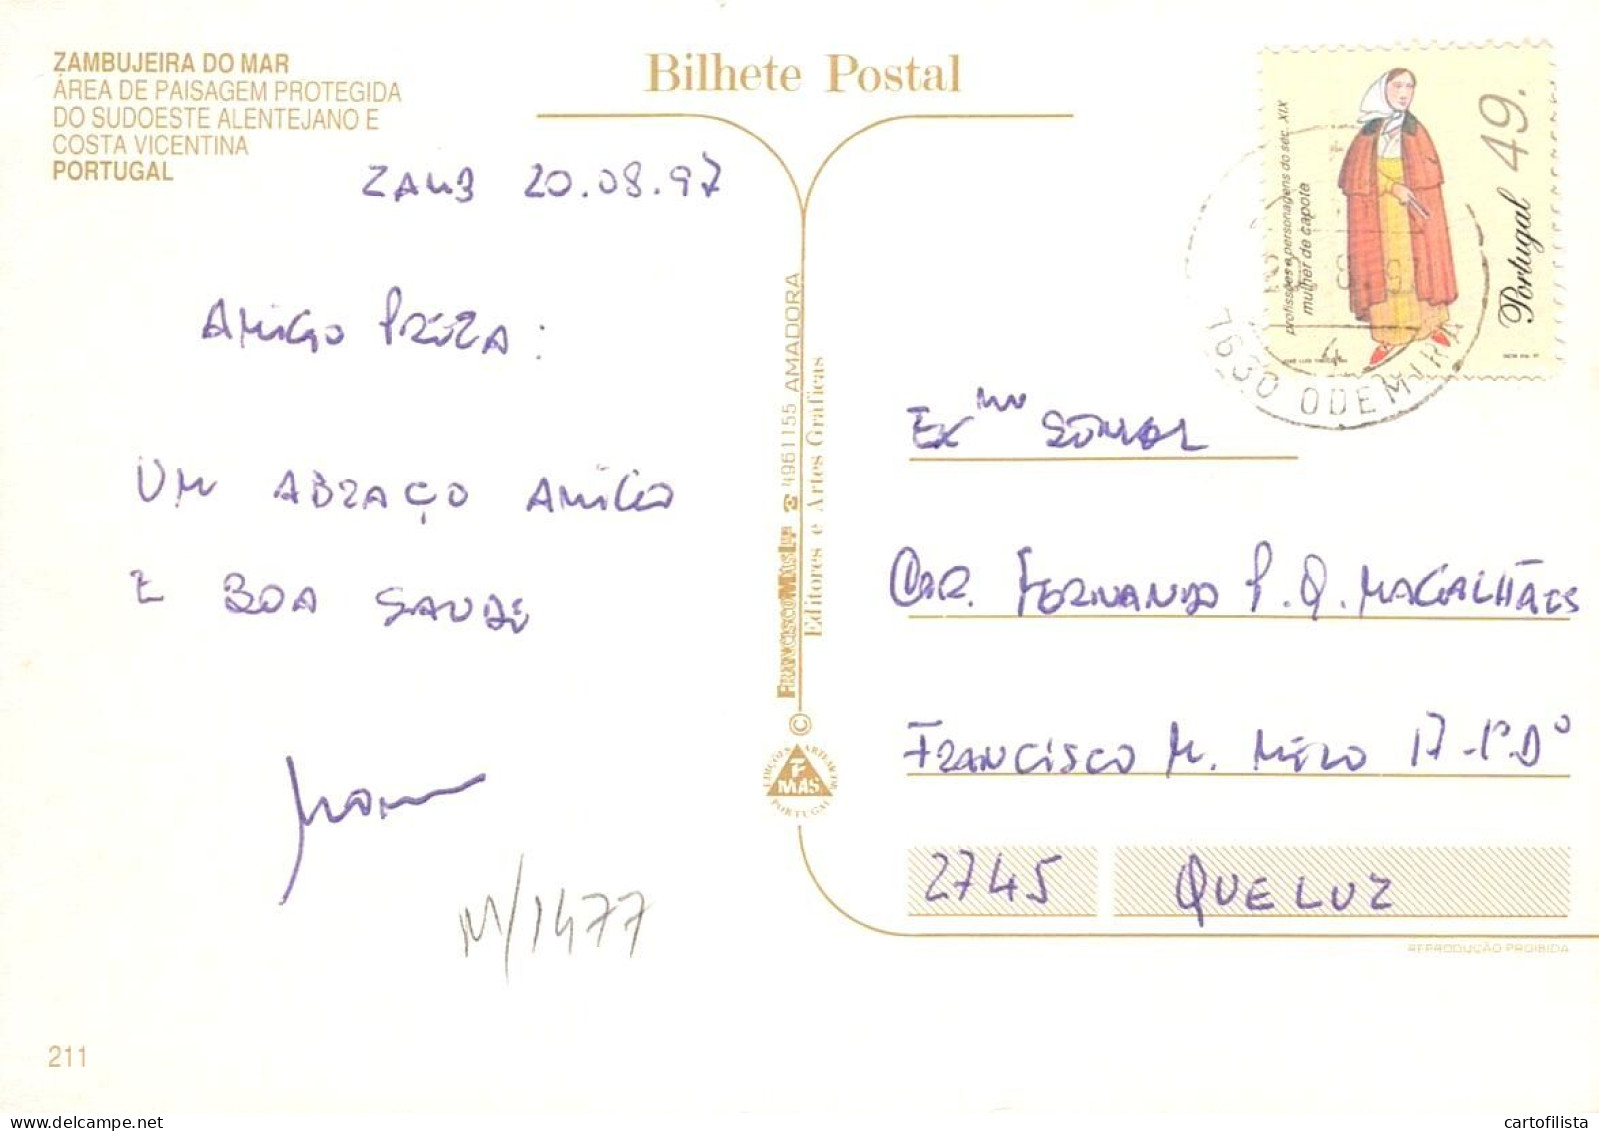 ZAMBUJEIRA DO MAR
ÁREA DE PAISAGEM PROTEGIDA
DO SUDOESTE ALENTEJANO E
COSTA VICENTINA
PORTUGAL
Bilhete Postal
ZAMB 20.08.97
AMIGO
UM ABRAÇO AMIGO
E BOA SAUDE
M/1477
211
FRANCISCO MAS Lda ☎ 4961155 AMADORA
Editores e Artes Gráficas
©
EDIÇÕES ARTÍSTICAS
F
MAS
PORTUGAL
profissões e personagens do séc. XIX
mulher de capote
Portugal 49.
7630 ODEMIRA
4
Exmo SENHOR
FERNANDO P. Q. MAGALHÃES
FRANCISCO M. MELO 17-1º Dº
2745 QUELUZ
REPRODUÇÃO PROIBIDA
cartofilista